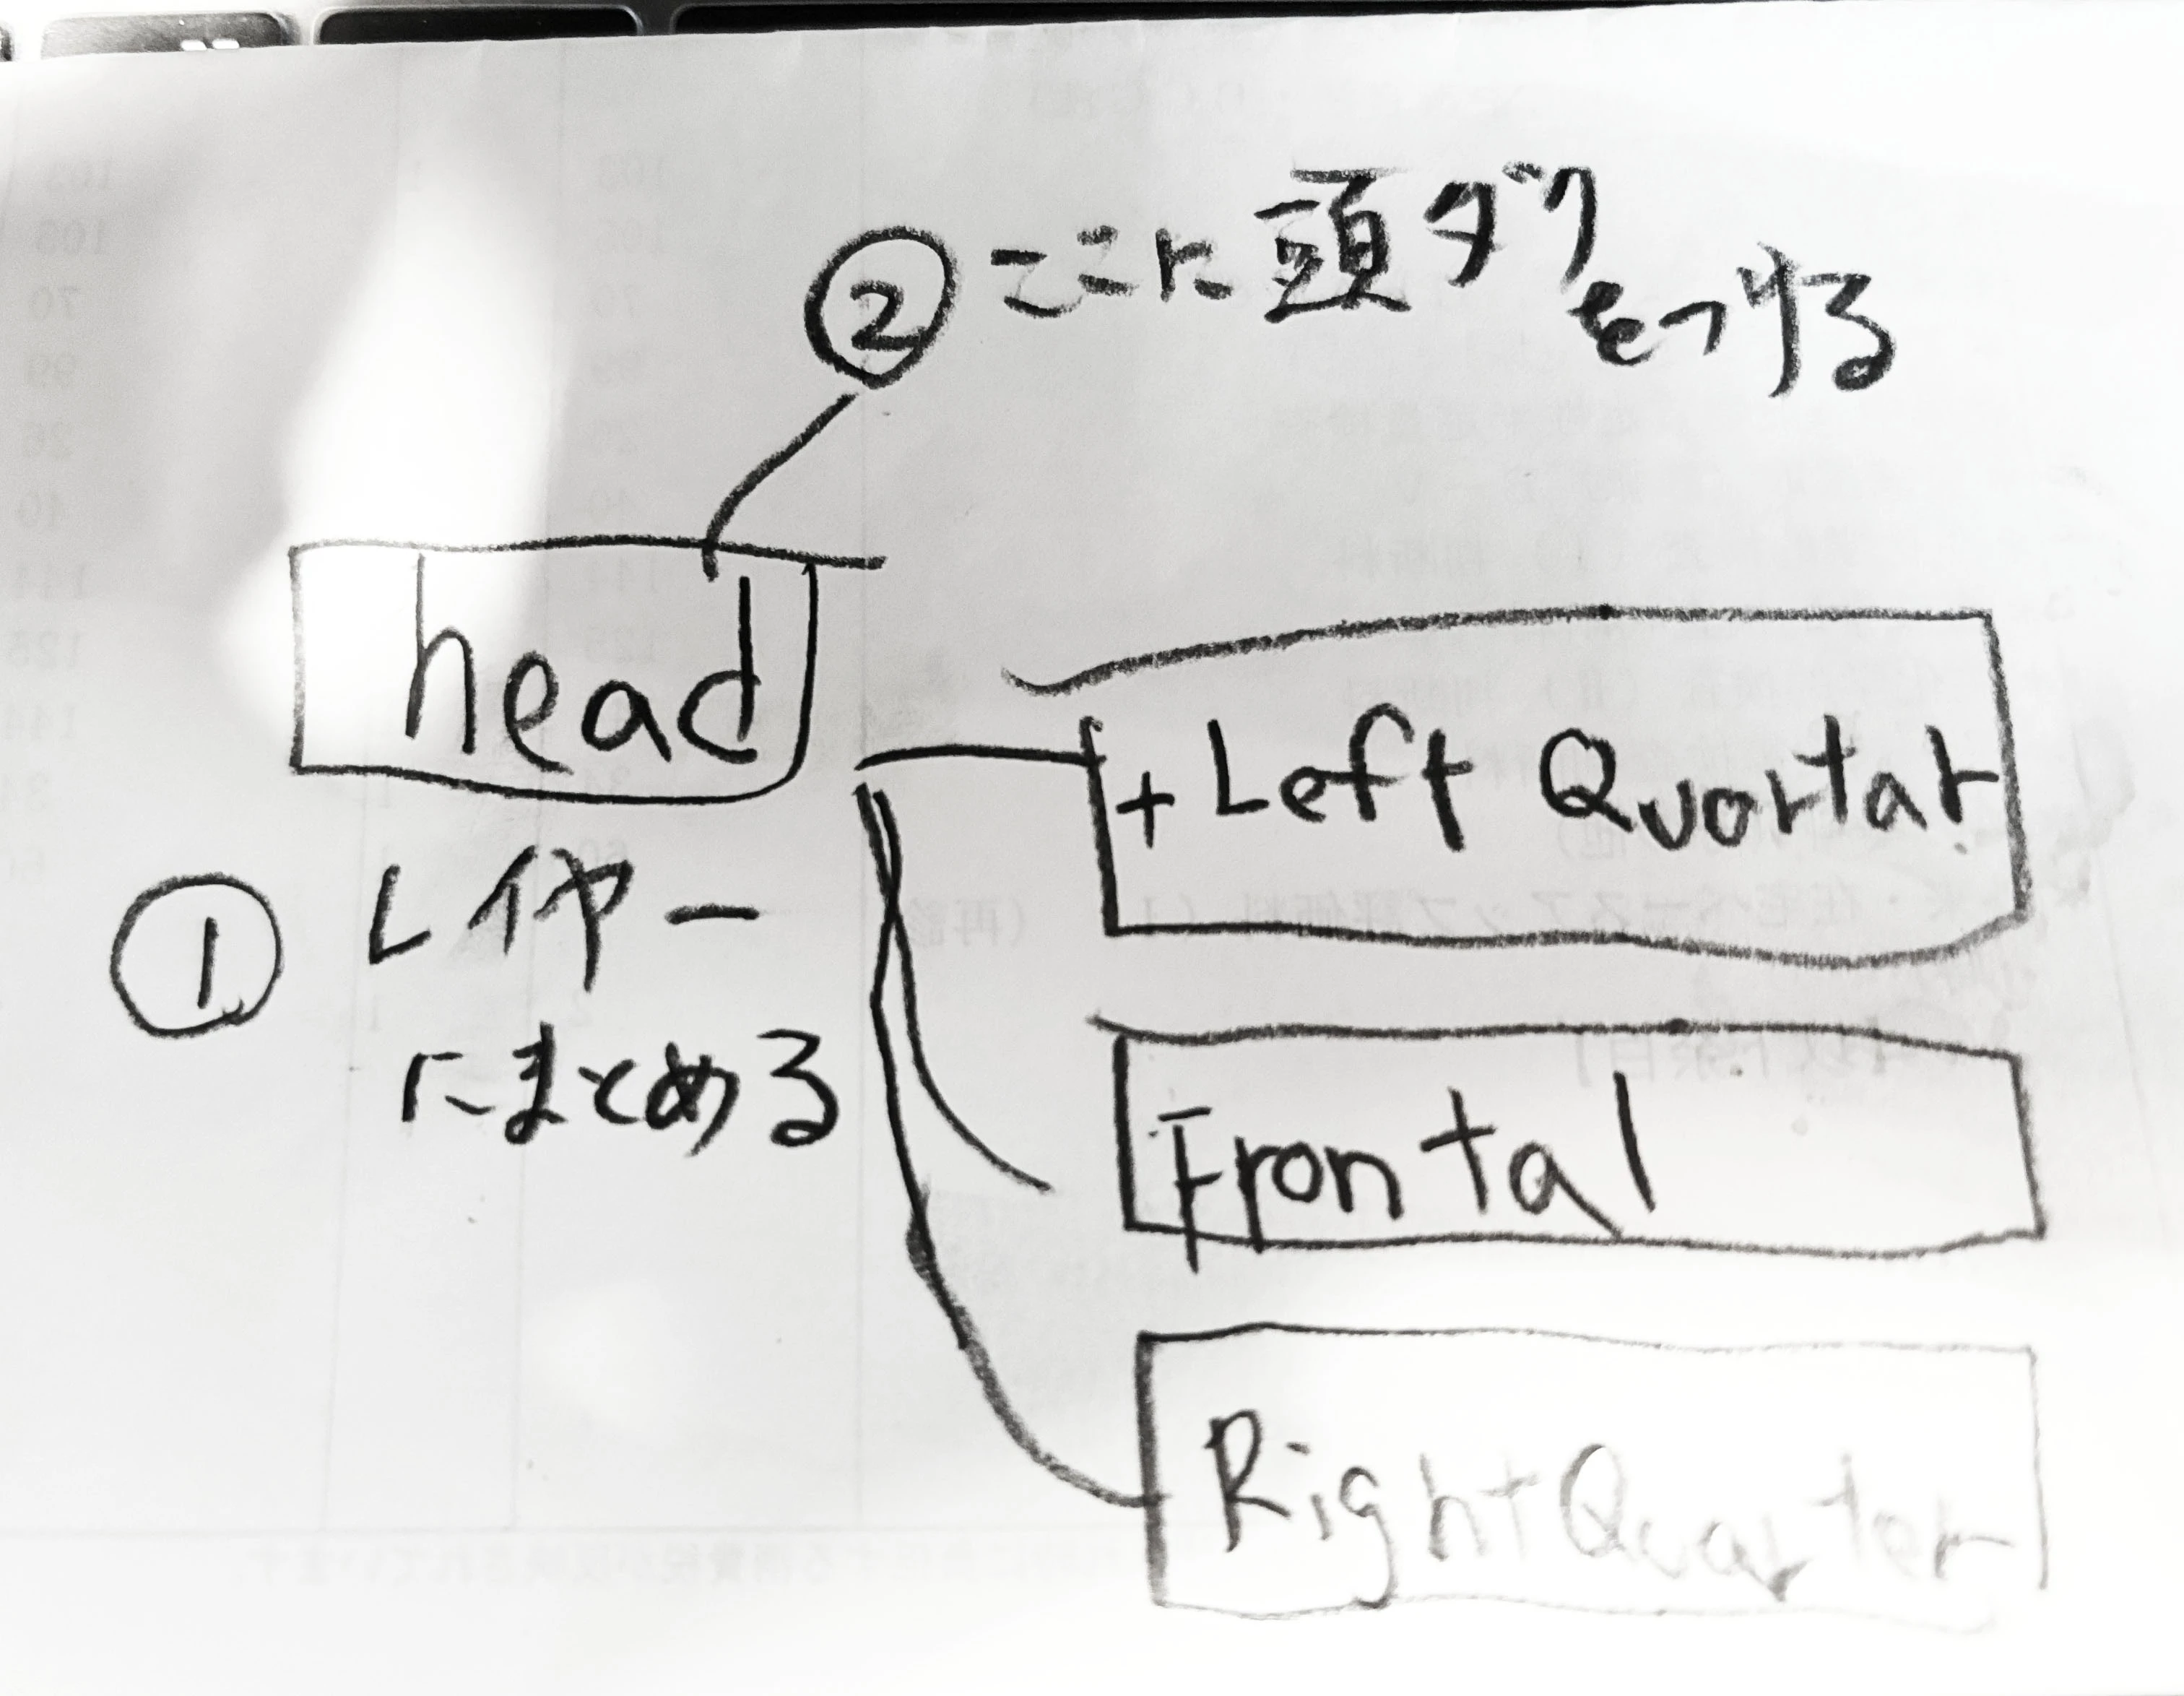 ② ここに頭タグ
をつける
head
+Left Quortar
① レイヤー
にまとめる
Frontal
Right Quarter